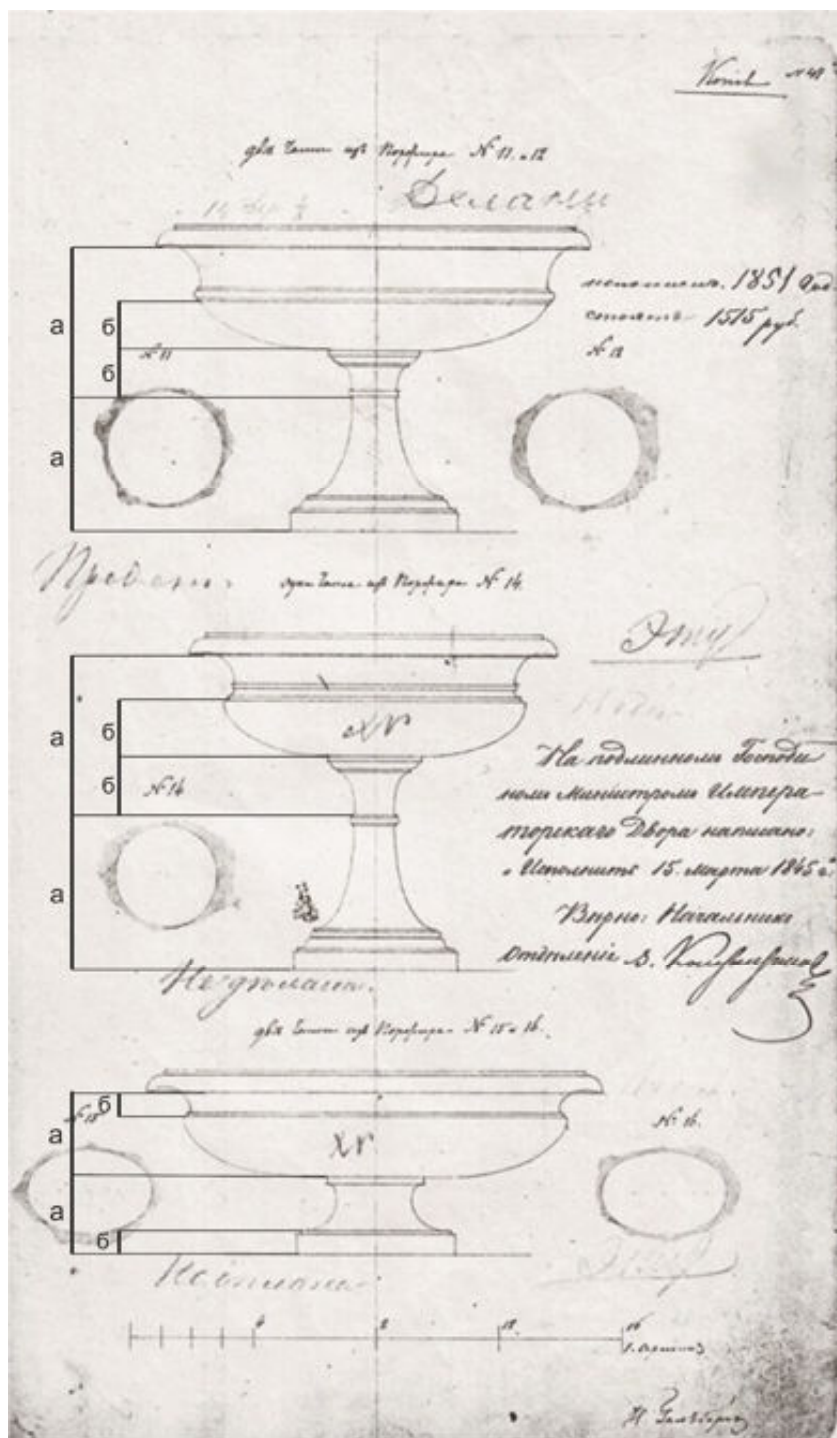 Копiя № 41
двѣ Чаши изъ Порфира № 11. и 12
Деланы
исполнены. 1851 Год.
стоятъ 1515 руб.
№ 12
а
б
б
№ 11
а
одна Чаша изъ Порфира № 14.
Эту
а
б
XV
б
№ 14
а
На подлинномъ Господи
номъ Министромъ Импера-
торскаго Двора написано:
„Исполнить 15. марта 1845 г.
Вѣрно: Начальникъ
Отдѣленiя В.
Не дѣлана.
двѣ Чаши изъ Порфира № 15 и 16.
б
№ 15
№ 16.
а
XV
а
б
Эту
4 8 12 16
1. Аршинъ